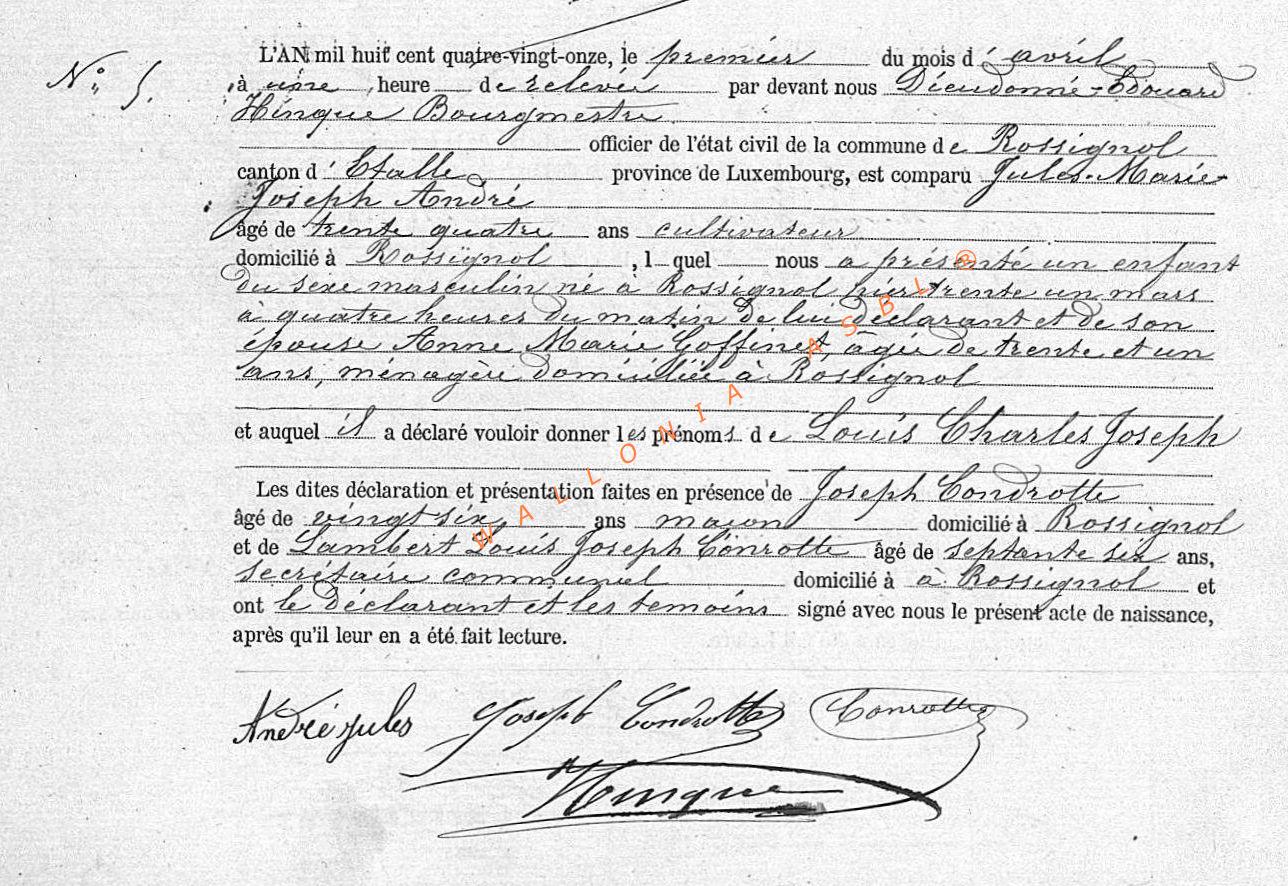 N° 5.
L'AN mil huit cent quatre-vingt-onze, le premier du mois d' avril
à une heure de relevée par devant nous Dieudonné-Edouard
Hinque Bourgmestre
officier de l'état civil de la commune de Rossignol
canton d' Etalle province de Luxembourg, est comparu Jules-Marie-
Joseph André
âgé de trente quatre ans cultivateur
domicilié à Rossignol, l quel nous a présenté un enfant
du sexe masculin né à Rossignol hier trente un mars
à quatre heures du matin de lui déclarant et de son
épouse Anne Marie Goffinet, âgée de trente et un
ans, ménagère domiciliée à Rossignol
et auquel il a déclaré vouloir donner les prénoms de Louis Charles Joseph
Les dites déclaration et présentation faites en présence de Joseph Condrotte
âgé de vingt six ans maçon domicilié à Rossignol
et de Lambert Louis Joseph Conrotte âgé de septante six ans,
secrétaire communel domicilié à à Rossignol et
ont le déclarant et les temoins signé avec nous le présent acte de naissance,
après qu'il leur en a été fait lecture.
André Jules Joseph Condrotte Conrotte
Hinque
WALLONIA ASBL ®